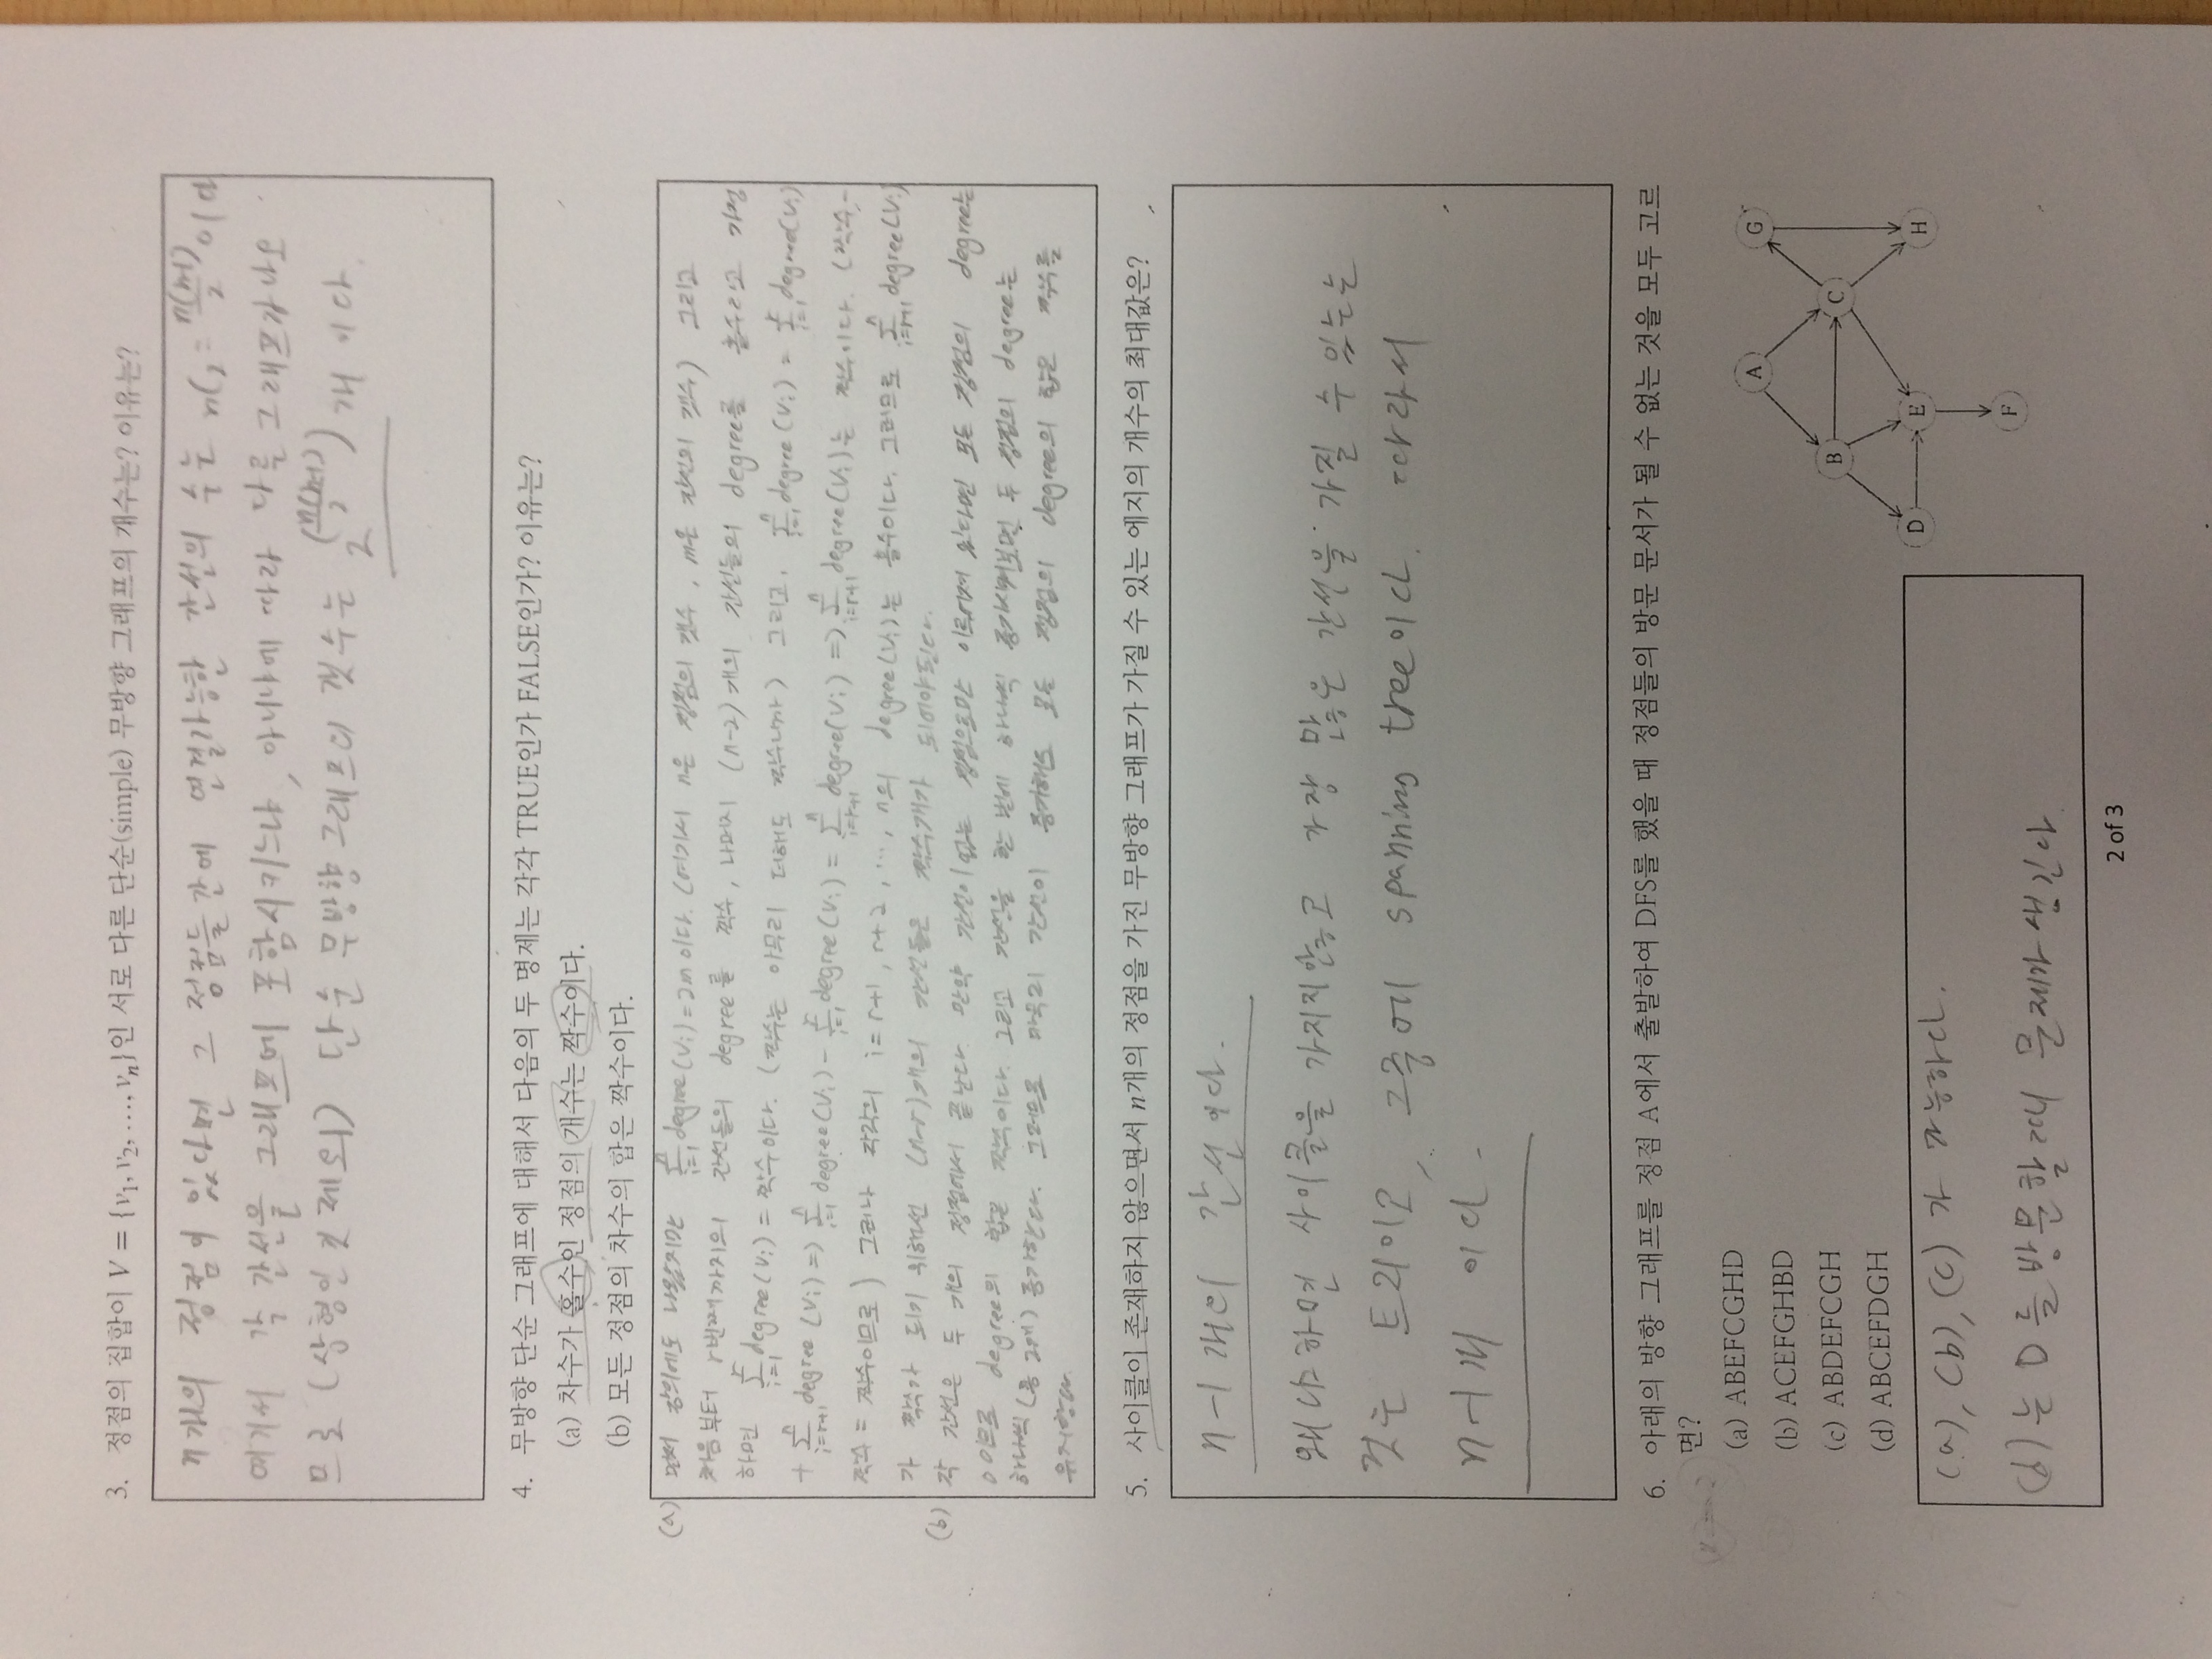 3. 정점의 집합이 V = {v1, v2, …, vn}인 서로 다른 단순(simple) 무방향 그래프의 개수는? 이유는?
n개의 정점이 있다면 그 정점들간에 연결가능한 간선의 수는 nC2 = n(n-1)/2 이다
여기서 각 간선을 그래프에 포함시키느냐, 아니냐에 따라 다른 그래프가 나오
므로 (상형인 것 제외) 단순 무방향 그래프의 갯수는 2^(n(n-1)/2) 개 이다.
4. 무방향 단순 그래프에 대해서 다음의 두 명제는 각각 TRUE인가 FALSE인가? 이유는?
(a) 차수가 홀수인 정점의 개수는 짝수이다.
(b) 모든 정점의 차수의 합은 짝수이다.
(a) 먼저 강의에도 나왔지만 Σ(i=1..n) degree(vi) = 2m 이다. (여기서 n은 정점의 갯수, m은 간선의 갯수) 그리고
처음부터 r번째까지의 간선들의 degree를 짝수, 나머지 (n-2)개의 간선들의 degree를 홀수라고 가정
하면 Σ(i=1..r) degree(vi) = 짝수이다. (짝수는 아무리 더해도 짝수니까) 그리고, Σ(i=1..n) degree(vi) = Σ(i=1..r) degree(vi)
+ Σ(i=r+1..n) degree(vi) => Σ(i=1..n) degree(vi) - Σ(i=1..r) degree(vi) = Σ(i=r+1..n) degree(vi) => Σ(i=r+1..n) degree(vi)는 짝수이다. (짝수-
짝수 = 짝수이므로) 그러나 각각의 i=r+1, r+2, …, n의 degree(vi)는 홀수이다. 그러므로 Σ(i=r+1..n) degree(vi)
가 짝수가 되기 위해선 (n-r)개의 간선들은 짝수개가 되어야된다.
(b) 각 간선은 두 개의 정점에서 끝난다. 만약 간선이 없는 정점으로만 이루어져 있다면 모든 정점의 degree는
0 이므로 degree의 합은 짝수이다. 그리고 간선을 한 번에 하나씩 증가시켜보면, 두 정점의 degree는
하나씩 (총 2개) 증가한다. 그러므로 아무리 간선이 증가해도 모든 정점의 degree의 합은 짝수를
유지한다.
5. 사이클이 존재하지 않으면서 n개의 정점을 가진 무방향 그래프가 가질 수 있는 에지의 개수의 최대값은?
n-1 개의 간선이다.
왜냐하면 사이클을 가지지않고 가장 많은 간선을 가질 수 있는는
것은 트리이고, 그중에 spanning tree이다. 따라서
n-1개 이다.
6. 아래의 방향 그래프를 정점 A에서 출발하여 DFS를 했을 때 정점들의 방문 문서가 될 수 없는 것을 모두 고르
면?
(a) ABEFCGHD
(b) ACEFGHBD
(c) ABDEFCGH
(d) ABCEFDGH
A G
B C
D E H
F
(a), (b), (c) 가 가능하다.
(d)는 D를 방문할때 문제가 생긴다.
2 of 3